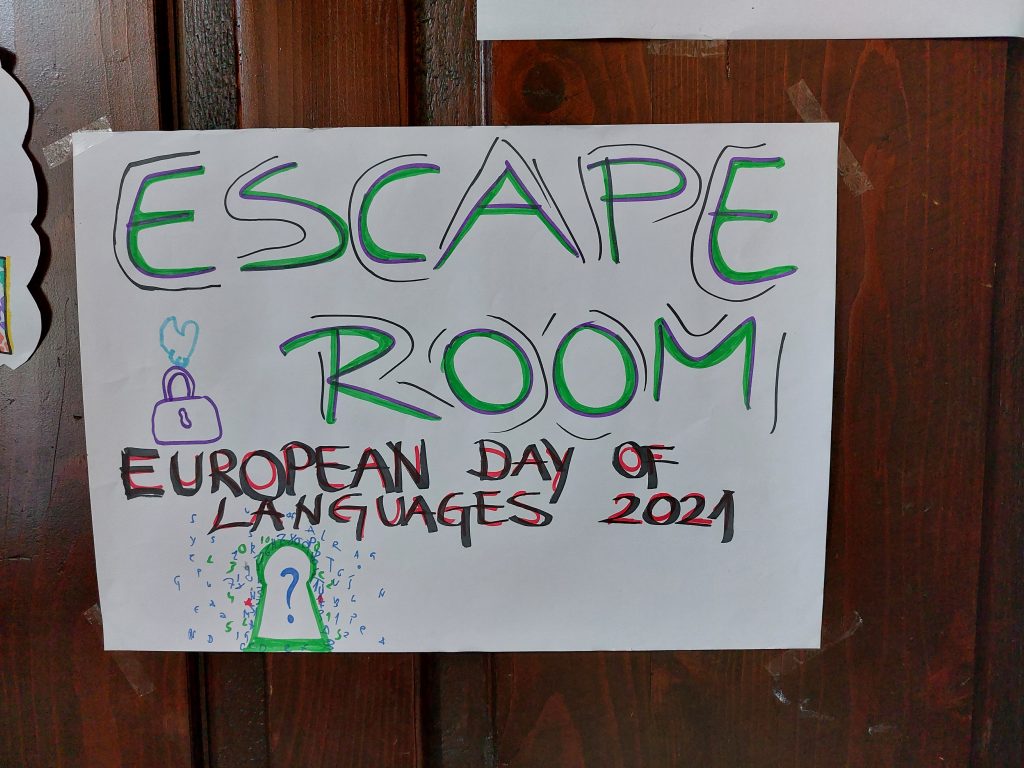 ESCAPE
ROOM
EUROPEAN DAY OF
LANGUAGES 2021
?